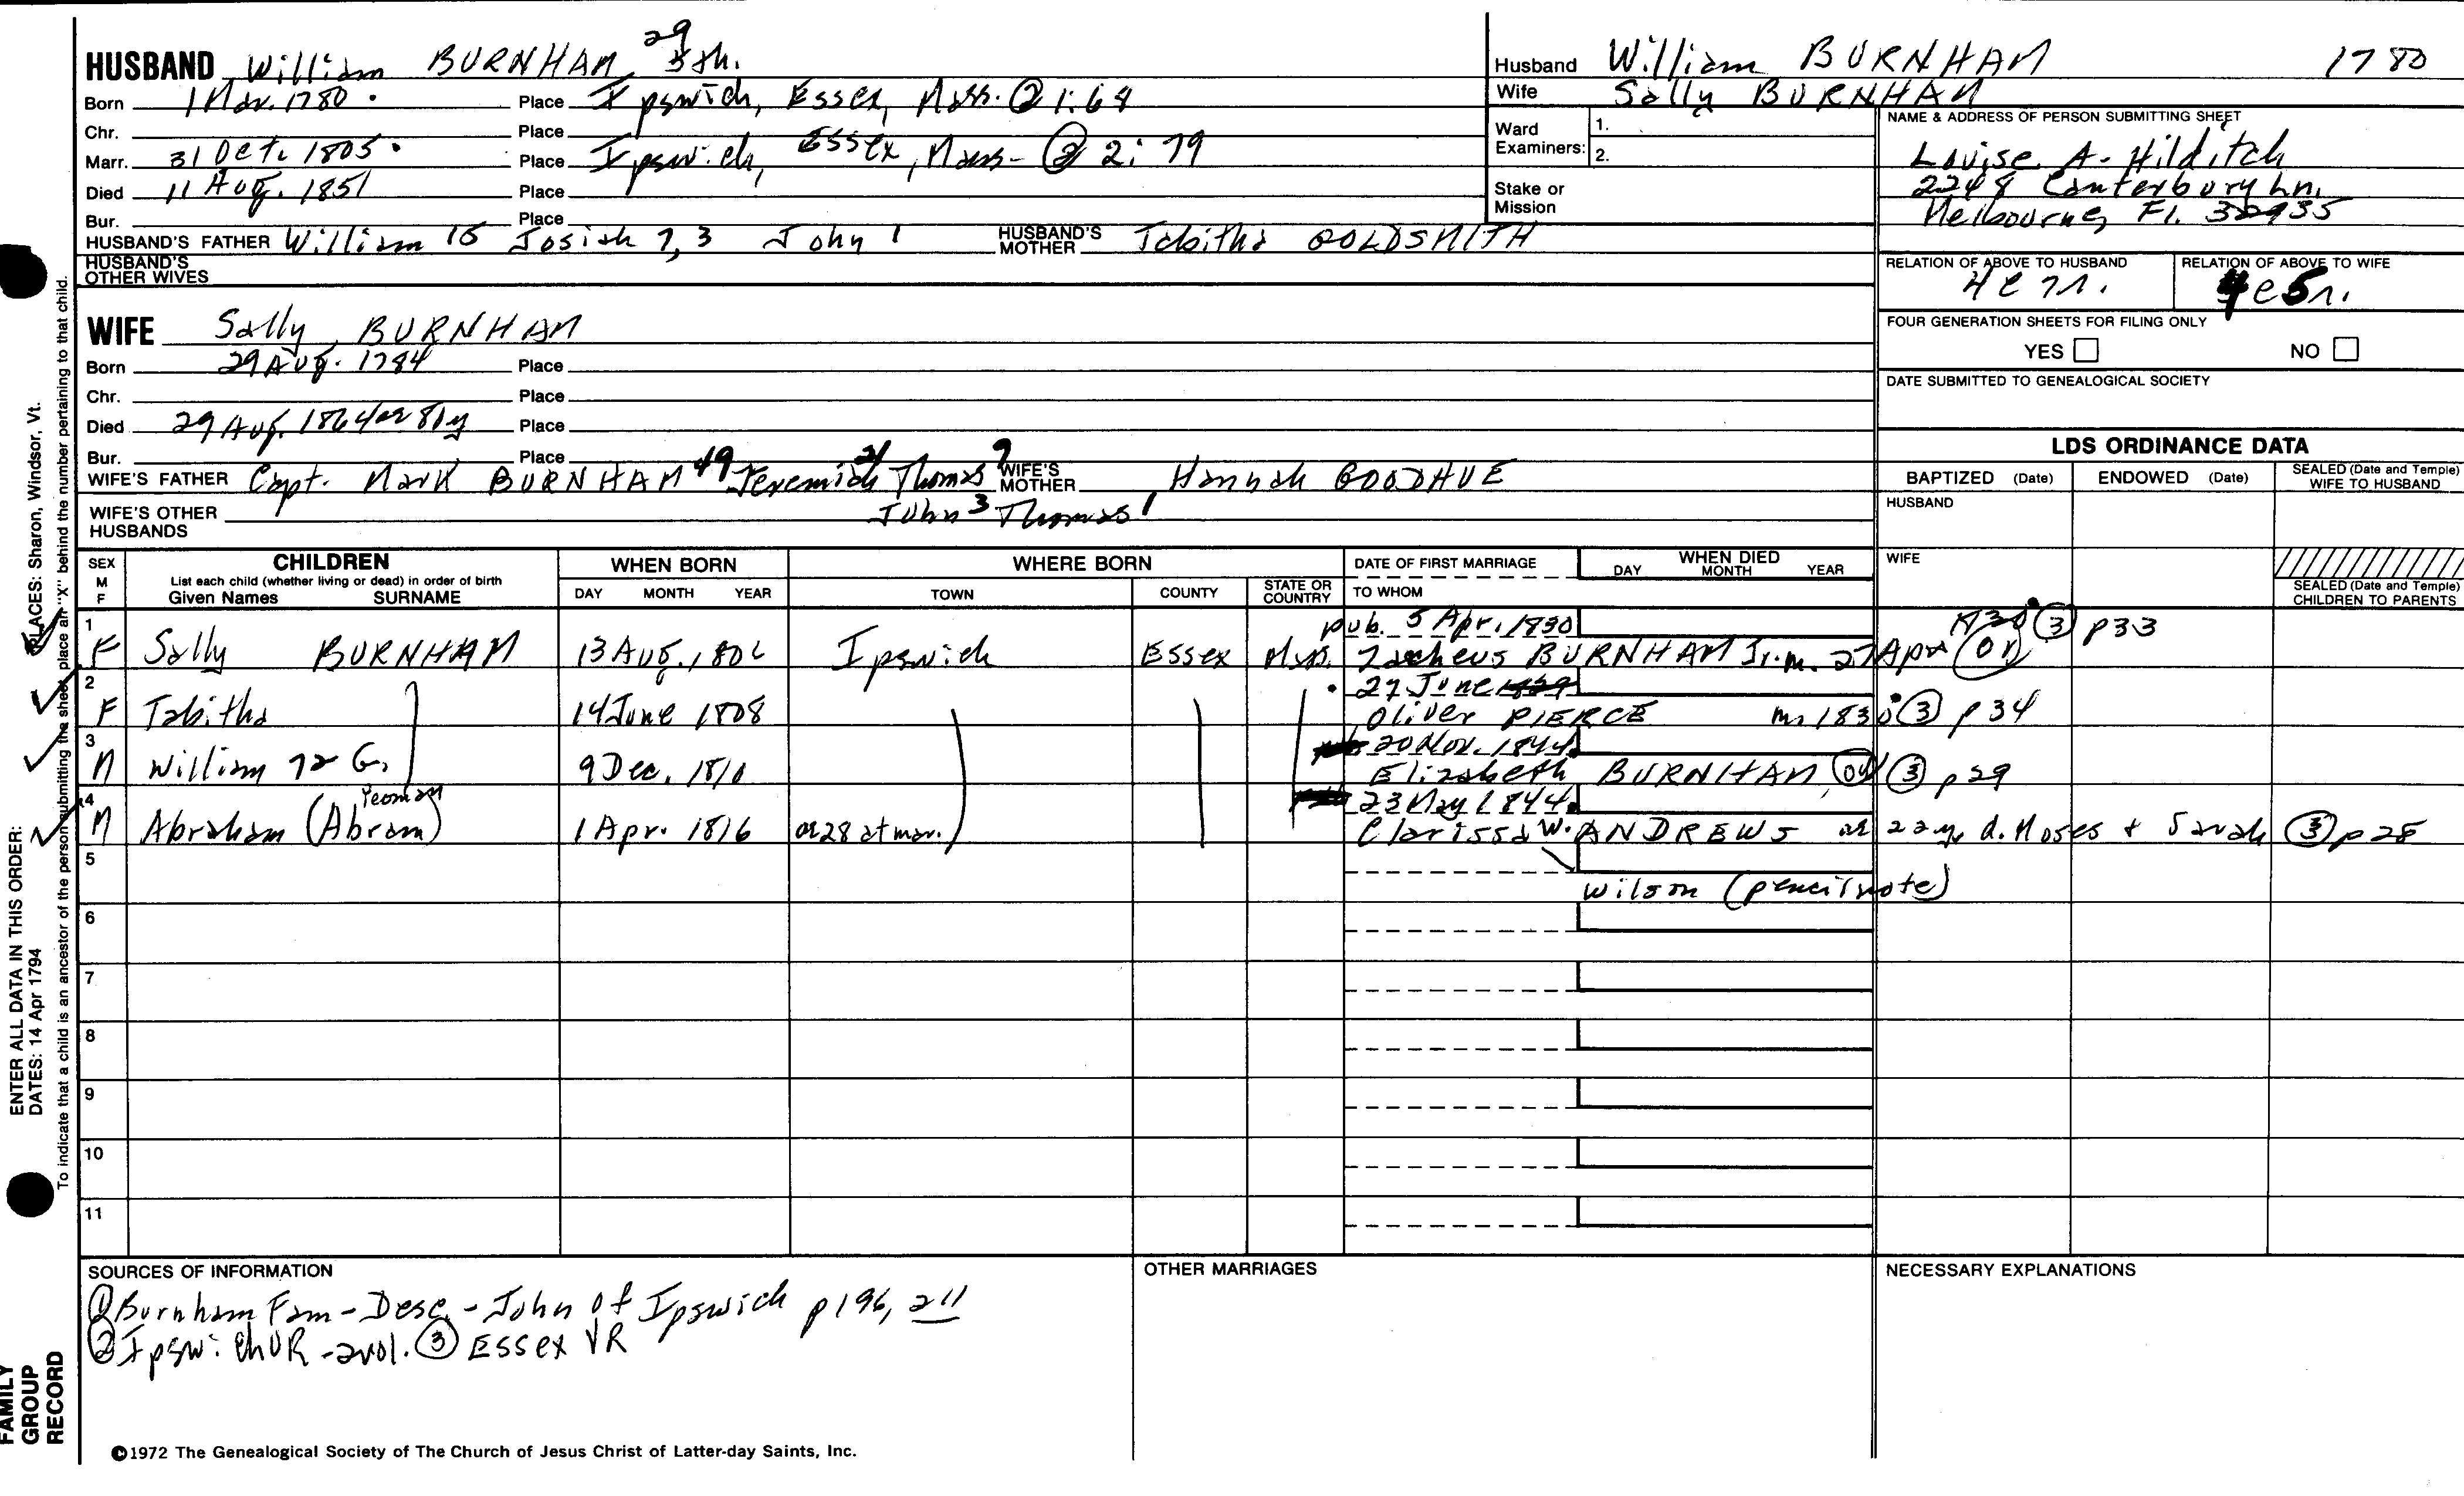 HUSBAND William BURNHAM 29 5th.
Born 1 Mar. 1780. Place Ipswich, Essex, Mass. ② 1:64
Chr. Place
Marr. 31 Oct. 1805. Place Ipswich, Essex, Mass- ② 2:79
Died 11 Aug. 1851 Place
Bur. Place
HUSBAND'S FATHER William 15 Josiah 7, 3 John 1 HUSBAND'S MOTHER Tabitha GOLDSMITH
HUSBAND'S OTHER WIVES
WIFE Sally BURNHAM
Born 29 Aug. 1784 Place
Chr. Place
Died 29 Aug. 1864 ae 81y Place
Bur. Place
WIFE'S FATHER Capt. Mark BURNHAM 49 Jeremiah 21 Thomas 9 WIFE'S MOTHER Hannah GOODHUE
WIFE'S OTHER HUSBANDS John 3 Thomas 1
Husband William BURNHAM 1780
Wife Sally BURNHAM
Ward Examiners: 1.
2.
Stake or Mission
NAME & ADDRESS OF PERSON SUBMITTING SHEET
Louise A. Hilditch
2248 Canterbury Ln.
Melbourne, Fl. 32935
RELATION OF ABOVE TO HUSBAND RELATION OF ABOVE TO WIFE
4C 7r. 4C 5r.
FOUR GENERATION SHEETS FOR FILING ONLY
YES NO
DATE SUBMITTED TO GENEALOGICAL SOCIETY
LDS ORDINANCE DATA
BAPTIZED (Date) ENDOWED (Date) SEALED (Date and Temple) WIFE TO HUSBAND
HUSBAND
WIFE
SEALED (Date and Temple) CHILDREN TO PARENTS
SEX M F CHILDREN WHEN BORN WHERE BORN DATE OF FIRST MARRIAGE WHEN DIED
List each child (whether living or dead) in order of birth
Given Names SURNAME DAY MONTH YEAR TOWN COUNTY STATE OR COUNTRY TO WHOM DAY MONTH YEAR
pub. 5 Apr. 1830 1830 ③ p33
1 F Sally BURNHAM 13 Aug. 1806 Ipswich Essex Mass. Zacheus BURNHAM Jr. m. 27 Apr
27 June 1829
2 F Tabitha 14 June 1808 Oliver PIERCE m. 1830 ③ p 34
20 Nov. 1844
3 M William 72 G. 9 Dec. 1810 Elizabeth BURNHAM ③ p29
Yeoman 23 May 1844
4 M Abraham (Abram) 1 Apr. 1816 or 28 at mar. Clarissa W. ANDREWS ae 22y. d. Moses + Sarah ③ p 28
5
Wilson (pencil note)
6
7
8
9
10
11
SOURCES OF INFORMATION
① Burnham Fam - Desc. - John of Ipswich p 196, 211
② Ipswich VR - 2vol. ③ Essex VR
OTHER MARRIAGES
NECESSARY EXPLANATIONS
©1972 The Genealogical Society of The Church of Jesus Christ of Latter-day Saints, Inc.
ENTER ALL DATA IN THIS ORDER:
DATES: 14 Apr 1794
PLACES: Sharon, Windsor, Vt.
To indicate that a child is an ancestor of the person submitting the sheet, place an "X" behind the number pertaining to that child.
FAMILY
GROUP
RECORD